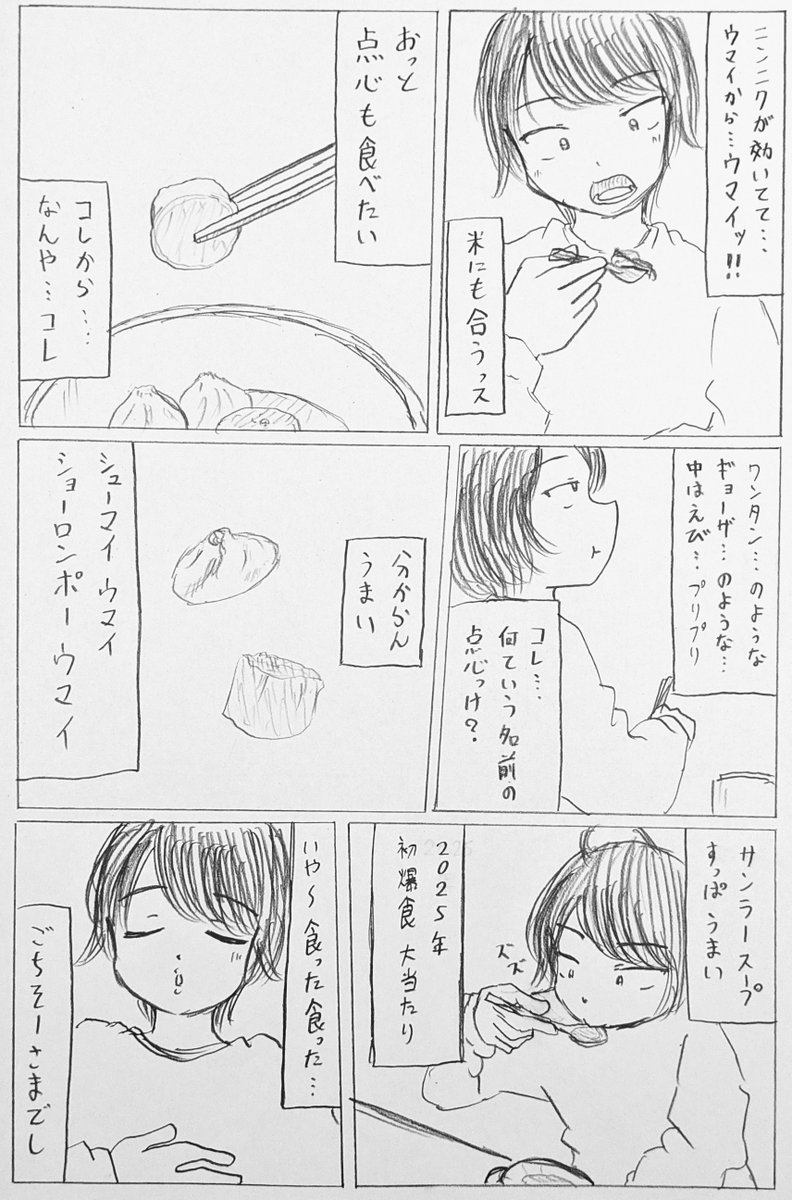 ニンニクが効いてて…
ウマイから…ウマイッ!!
米にも合うっス
おっと
点心も食べたい
コレから…
なんや…コレ
ワンタン…のような
ギョーザ…のような…
中はえび…プリプリ
コレ…
何ていう名前の
点心っけ？
分からん
うまい
シューマイ ウマイ
ショーロンポー ウマイ
サンラースープ
すっぱうまい
ズズ
2025年
初爆食 大当たり
いや〜食った食った…
ごちそーさまでし